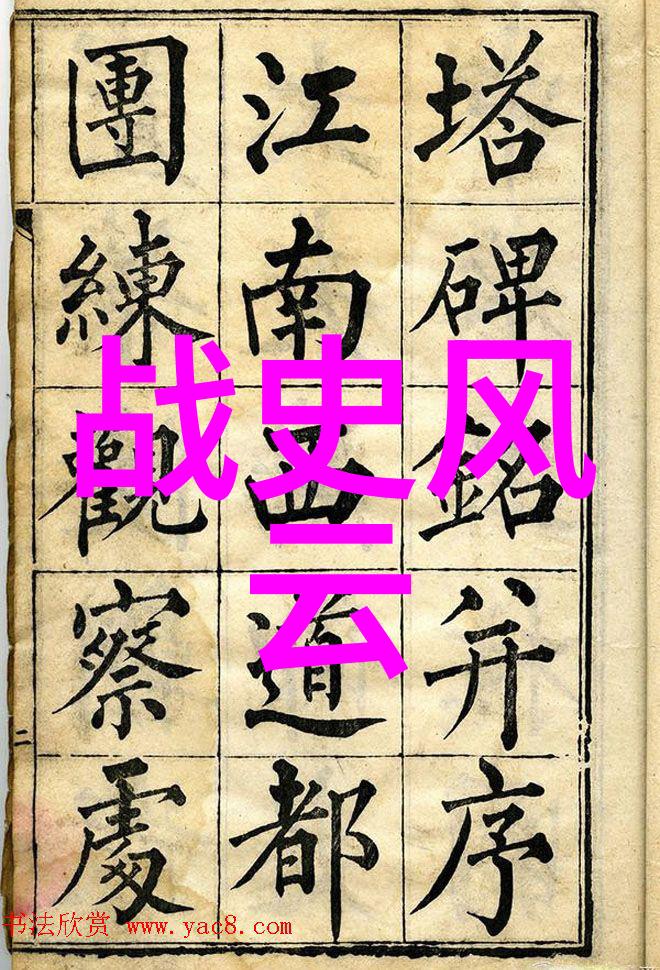 塔碑銘并序
江南西道都
團練觀察處
二
战史风
云
书法欣赏 www.yac8.com